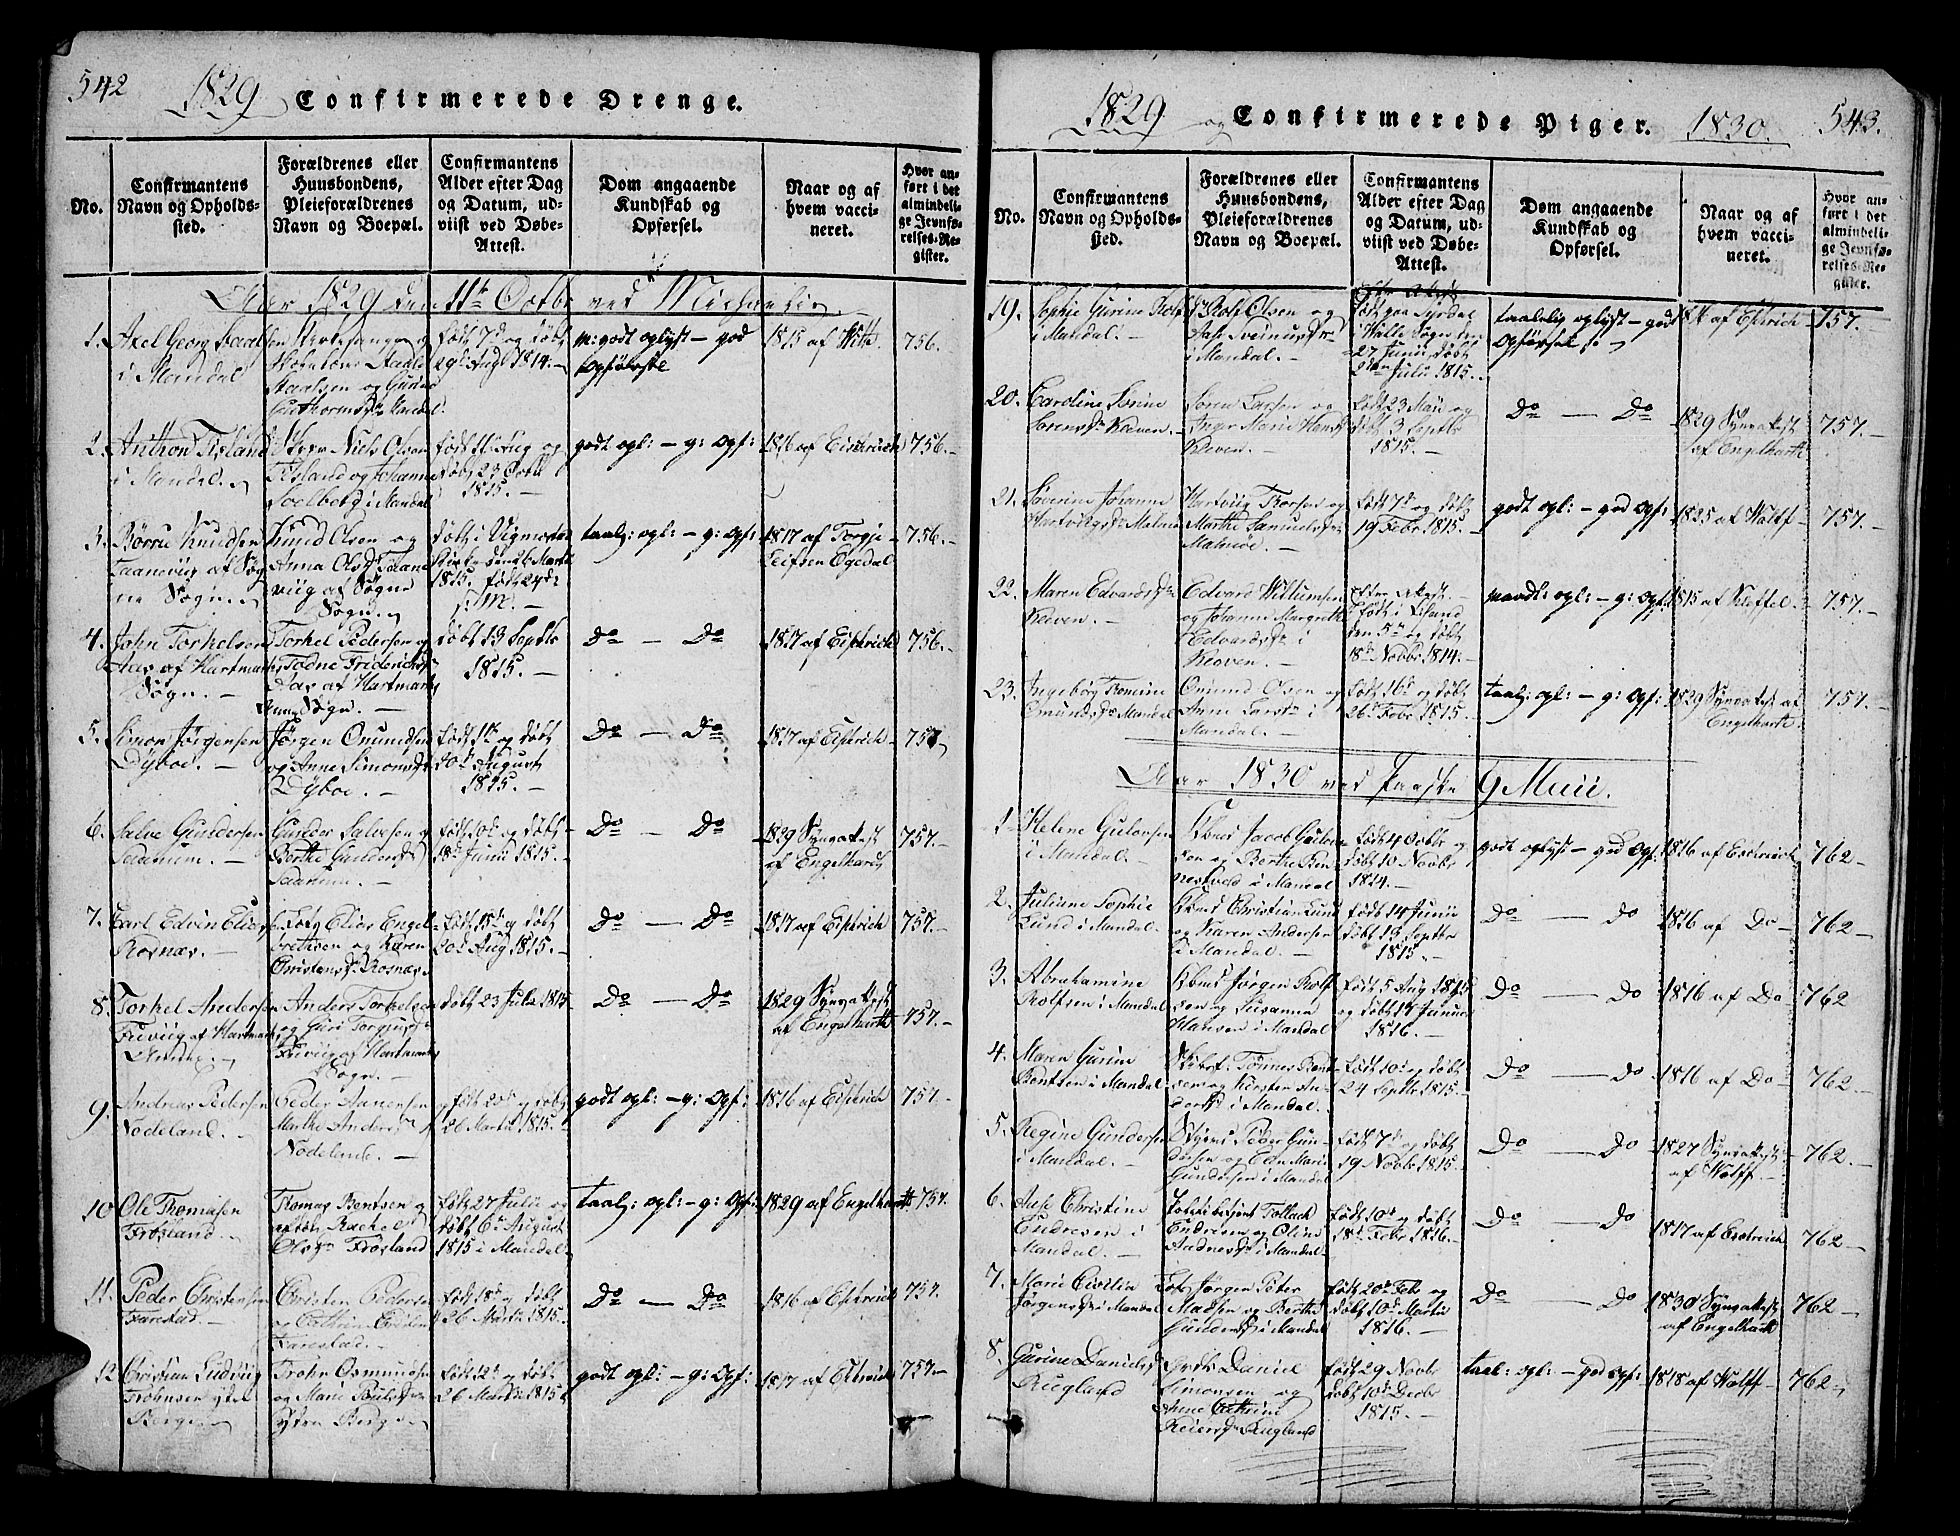 542
1829 Confirmerede Drenge.
No.
Confirmantens
Navn og Opholds-
sted.
Forældrenes eller
Huusbondens,
Pleieforældrenes
Navn og Boepæl.
Confirmantens
Alder efter Dag
og Datum, ud-
viist ved Døbe-
Attest.
Dom angaaende
Kundskab og
Opførsel.
Naar og af
hvem vacci-
neret.
Hvor an-
ført i det
almindeli-
ge Jevnfø-
relses-Re-
gister.
Aar 1829 den 11te Octbr ved Michaeli
1. Axel Georg
i Mandal
født 7d og døbt
29d Augt 1814.
m: godt oplyst — god
opførelse
1815 af With
756.
2. Anthon Tisland
i Mandal.
Niels Olsen
Tisland og Johanne
Soelberg i Mandal
født 11te Aug og
døbt 23 Octbr
1815.
godt opl: — g: Opf:
1816 af Eistrich
756.
3. Børre Knudsen
Taanevig af Søg
ne Sogn.
Knud Olsen og
Anna Olsdr Taane
viig af Søgne
Sogn.
1815. født 24de
taal: opl: — g: Opf:
1817 af Torgje
Leifsen Egedal
756.
4. John Torkelsen
Aas af Hartmark
Sogn.
Torkel Pedersen og
Todne Fridrichsdr
Aas af Hartmark
Sogn.
døbt 13 Septbr
1815.
Do — Do
1817 af Eistrich
756.
5. Simon Jørgensen
Dyboe.
Jørgen Onundsen
og Anne Simonsdr
Dyboe.
født 1te og døbt
20d August
1815.
Do — Do
1817 af Eistrich
757
6. Salve Gundersen
Gunder Salvesen og
Berthe Gundersdr
født 10d og døbt
18d Junii 1815.
Do — Do
1829 Synsattest
af Engelhardt
757.
7. Carl Edvin Elias
Rosnæs.
Elias Engel-
brethsen og Karen
Christensdr Rosnæs
født 15d og døbt
20d Aug 1815.
Do — Do
1817 af Eistrich
757.
8. Torkel Andersen
Friviig af Hartmark
Anders Torkelsen
og Guri Torjusdr
Friviig af Hartmark
Sogn.
døbt 23 Julii 1815
Do — Do
1829 Synsattest
af Engelhardt
757.
9. Andreas Pedersen
Nodeland.
Peder Aanensen
Marthe Andersdr
Nodeland.
født 20d og døbt
26 Martii 1815.
godt opl: — g: Opf:
1816 af Eistrich
757.
10 Ole Thomasen
Frøsland.
Thomas Bentsen og
Rachel
Olsdr Frøsland
født 27 Julii og
døbt 6d August
1815 i Mandal
taal: opl: — g: Opf:
1829 af Engelhardt
757.
11. Peder Christensen
Farestad.
Christen Pedersen
Farestad.
født 18d og døbt
26 Martii 1815.
Do — Do
1816 af Eistrich
757.
12 Christian Ludvig
Trohnsen ytre
Berge
Trohn Osmundsen
og Marie
ytre Berge
født 12d og døbt
26 Martii 1815
godt opl: — g: Opf:
1817 af Eistrich
757.
1829 og Confirmerede Piger. 1830. 543.
No.
Confirmantens
Navn og Opholds-
sted.
Forældrenes eller
Huusbondens,
Pleieforældrenes
Navn og Boepæl.
Confirmantens
Alder efter Dag
og Datum, ud-
viist ved Døbe-
Attest.
Dom angaaende
Kundskab og
Opførsel.
Naar og af
hvem vacci-
neret.
Hvor an-
ført i det
almindeli-
ge Jevnfø-
relses-Re-
gister.
19. Sophie Gurine Rolfsdr
i Mandal.
Rolf Olsen og
i Mandal.
27 Junii døbt
Julii 1815.
taalelig oplyst — god
Opførsel
af Eistrich
757.
20. Caroline Sørine
Sørensdr Kleven.
Søren Larsen og
Inger Marie Hansdr
Kleven.
født 23 Maii og
døbt 3 Septbr
1815.
Do — Do
1829 Synsattest
af Engelhardt
757.
21. Severine Johanne
Hartvigsdr Malmøe
Hartvig Thorsen og
Marthe Samuelsdr
Malmøe.
født 7d og døbt
19 Febr 1815.
godt opl: — god Opf:
1825 af Wolff
757.
22. Maren Edvardsdr
Kleven.
Edvard Willumsen
og Johanne Margrethe
Edvardsdr i
Kleven.
den 5te og døbt
18d Novbr 1814.
maadl: opl: — g: Opf:
1815 af Kleffel.
757.
23. Ingeborg Thomine
Onundsdr Mandal
Onund Olsen og
Anne Larsdr
Mandal.
født 16d og døbt
26d Febr 1815.
taal: opl: — g: Opf:
1829 Synsattest af
Engelhardt.
757.
Aar 1830 ved Paaske 9 Maii.
1. Helene Gulovsen
i Mandal.
Jacob Gulov
sen og Berthe Ben
i Mandal
født 4 Octbr og
døbt 10 Novbr
1814.
godt oplyst — god Opf:
1816 af Eistrich
762
2. Juliane Sophie
Lund i Mandal.
Christian Lund
og Karen Andersen
i Mandal.
født 14 Junii
døbt 13 Septbr
1815.
Do — Do
1816 af Do
762
3. Abrahamine
Rolfsen i Mandal
Jørgen Rolf
sen og Susanna
Hansen i Mandal
født 5 Aug 1815
og døbt 14 Junii
1816.
Do — Do
1816 af Do
762
4. Maren Gurine
Bentsen i Mandal
Tønnes Bent
sen og Kirsten An
dersdr i Mandal.
født 10d og døbt
24 Septbr 1815.
Do — Do
1816 af Do
762
5. Regine Gundersen
i Mandal.
Peder Gun-
dersen og
Gundersen i Mandal
født 7d og døbt
19 Novbr 1815.
Do — Do
1827 Synsattest
af Wolff
762
6. Aase Christine
Endresen i
Mandal.
Tollack
Endresen og Oline
Aadnesdr i Mandal.
født 10d og døbt
18d Febr 1816.
Do — Do
1817 af Eistrich
762
7. Marie
Jørgensdr i Mandal
Jørgen Peter
Madsen og Berthe
Gundersdr i Mandal
født 20d Feb og
døbt 10d Martii
1816.
Do — Do
1830 Synsattest
af Engelhardt
762
8. Gurine Danielsdr
Rugland
Daniel
Simonsen og
Anne Cathrine
Reiersdr Rugland
født 29 Novbr
døbt 10d Decbr
1815.
taal: opl: — god Opf:
1818 af Wolff
762